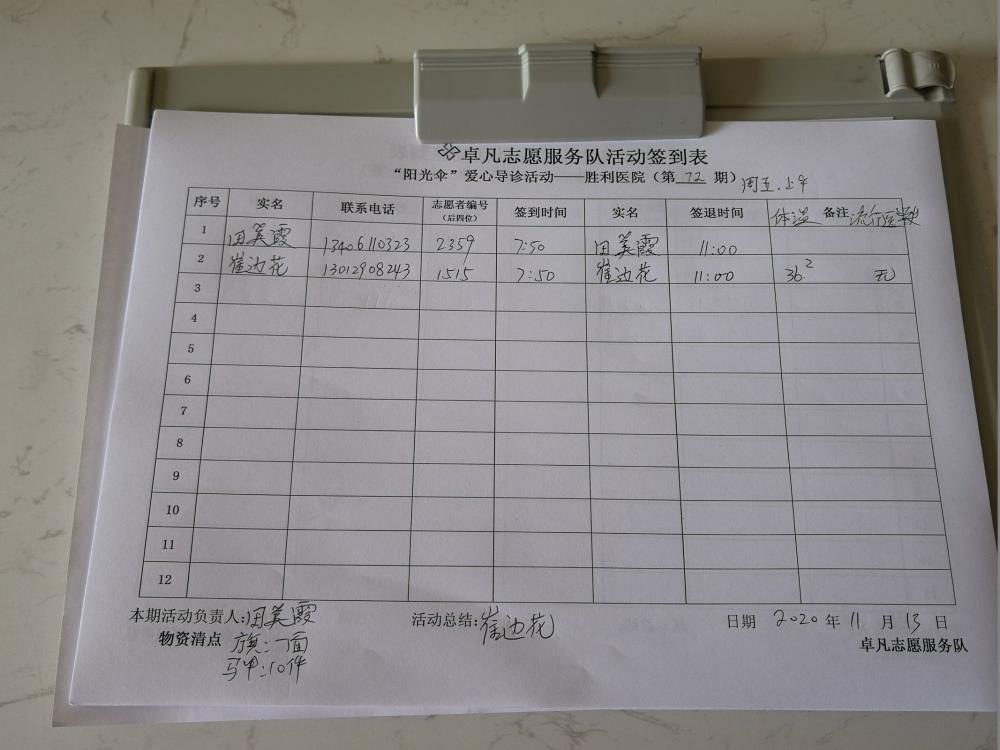 卓凡志愿服务队活动签到表
“阳光伞”爱心导诊活动——胜利医院（第 72 期）周五.上午
序号 实名 联系电话 志愿者编号（后四位） 签到时间 实名 签退时间 体温 备注 流行医学
1 田美霞 13406110323 2359 7:50 田美霞 11:00
2 崔边花 13012908243 1515 7:50 崔边花 11:00 36.2 无
3
4
5
6
7
8
9
10
11
12
本期活动负责人:田美霞 活动总结:崔边花 日期 2020 年 11 月 13 日
物资清点 旗:一面 卓凡志愿服务队
马甲:10件